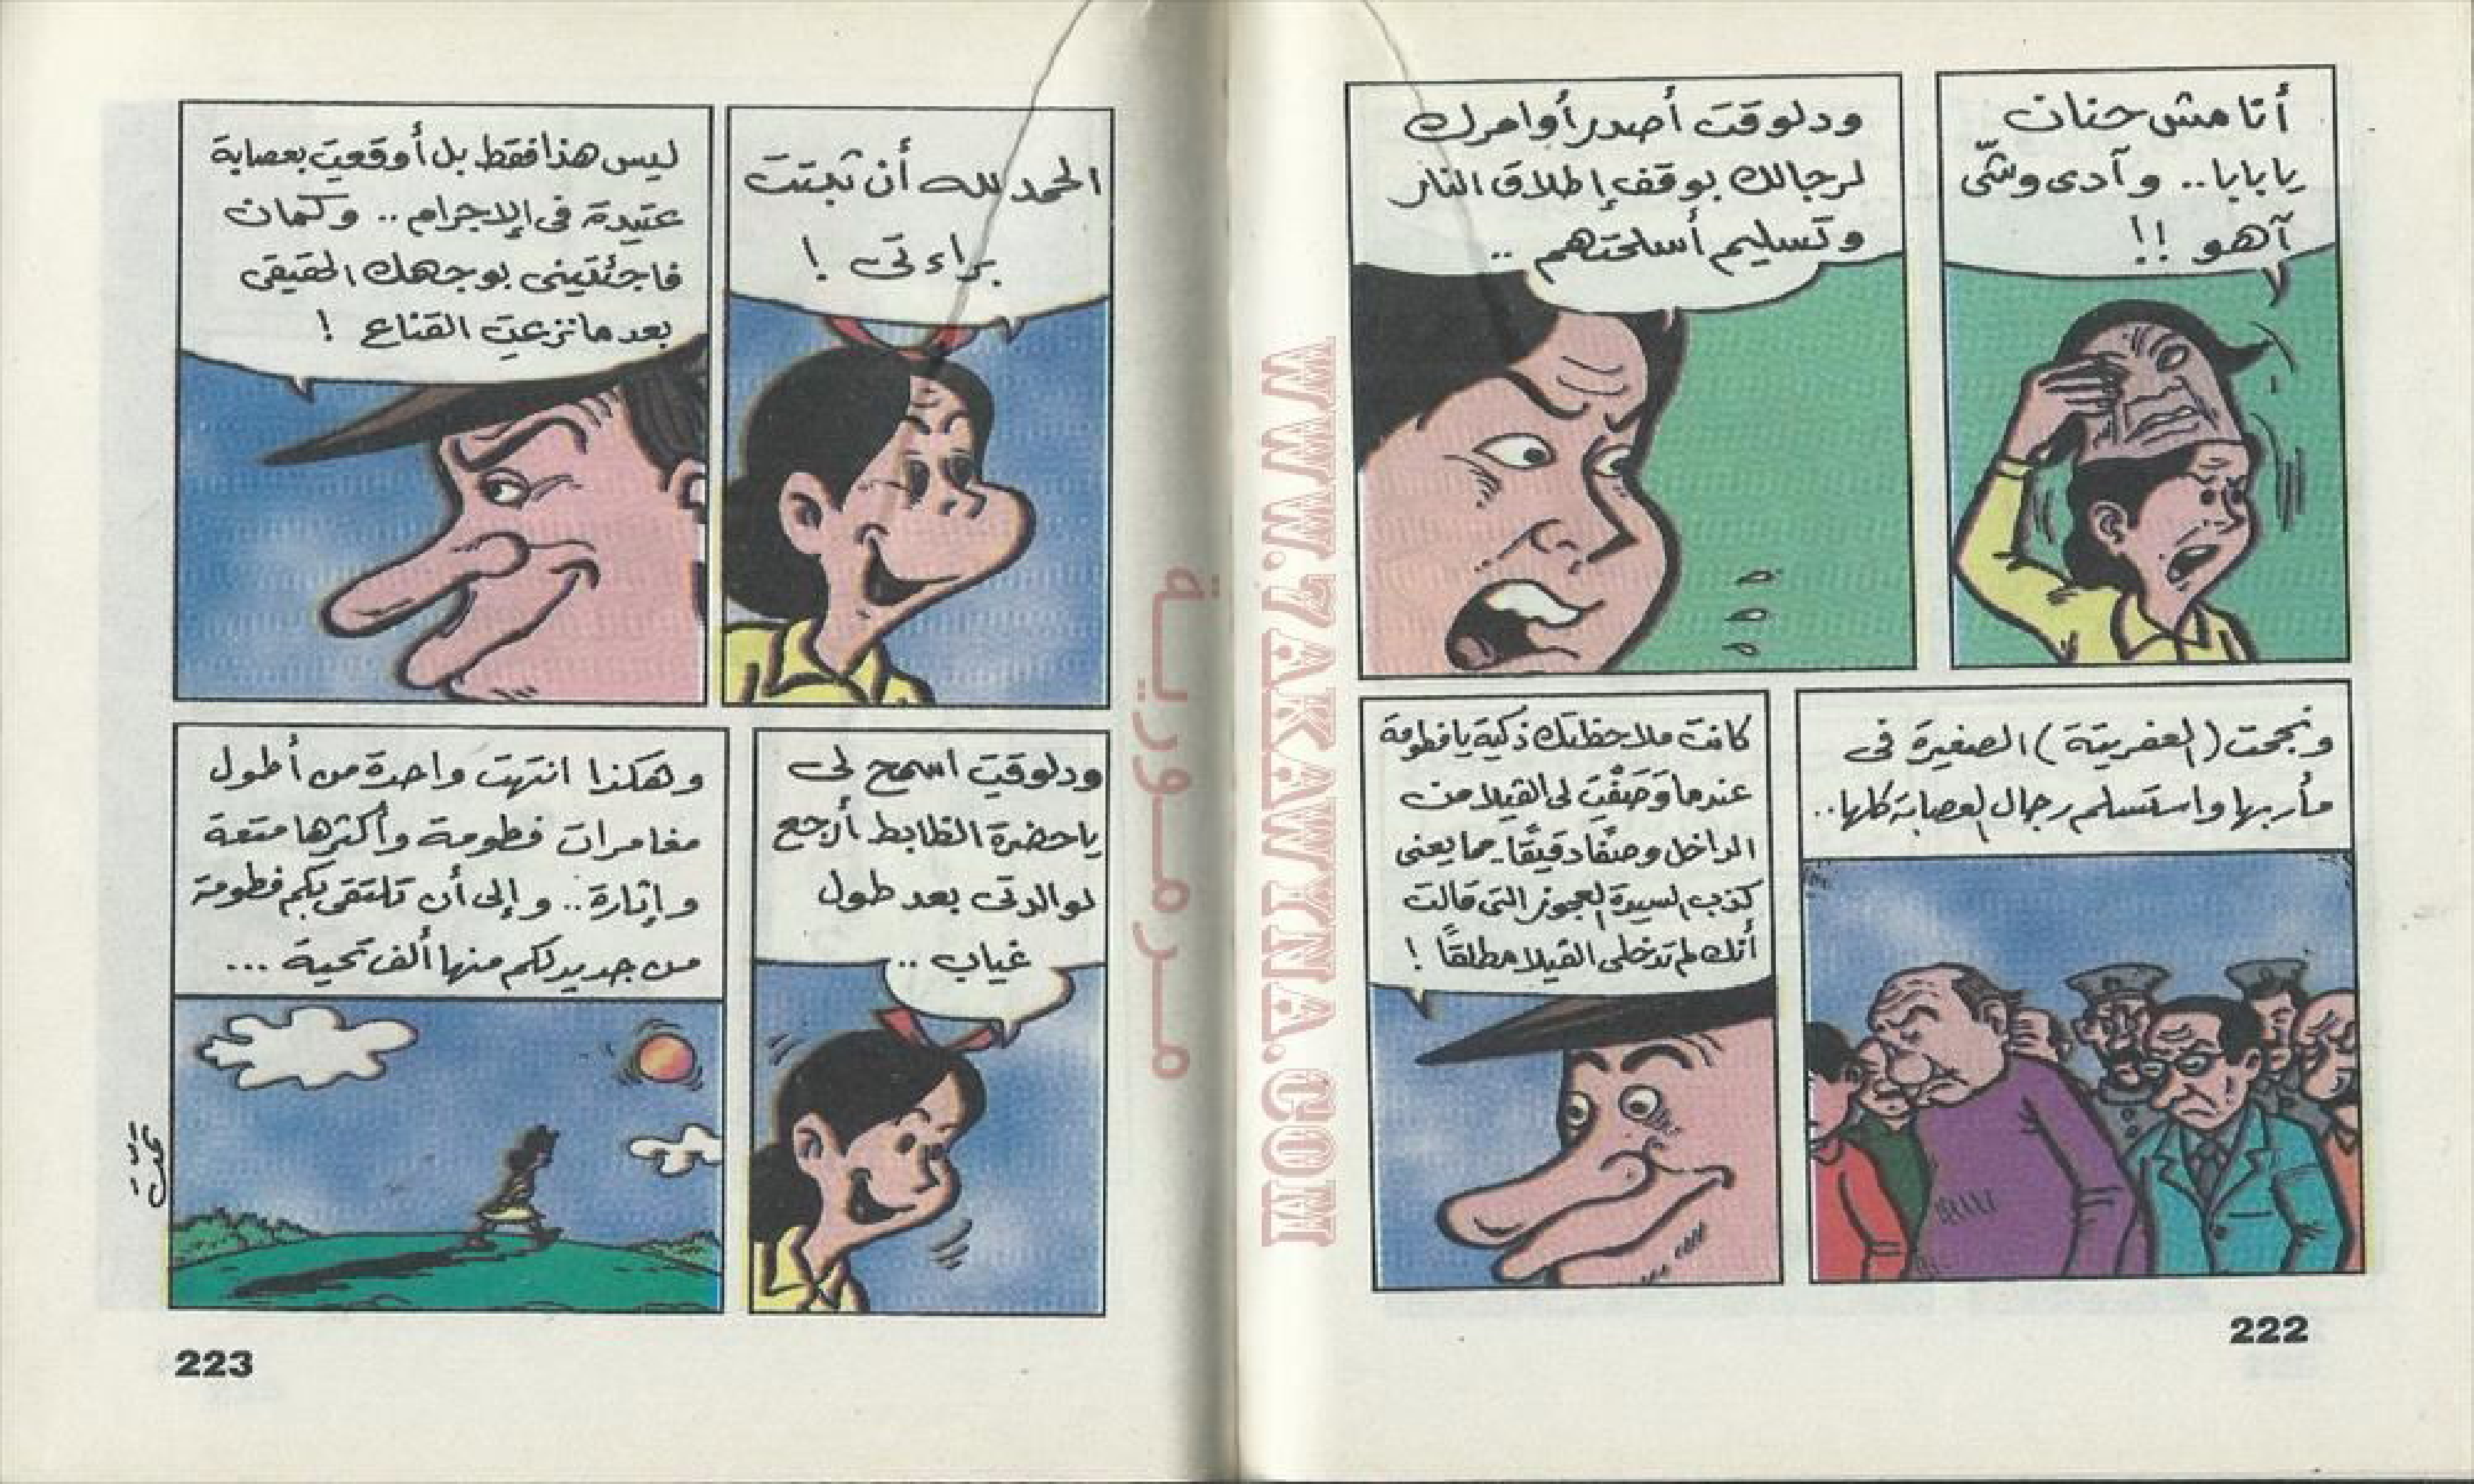 أنا مش حنان
يا بابا.. وآدى وشّى
آهو !!
ودلوقت أصدر أوامرك
لرجالك بوقف إطلاق النار
وتسليم أسلحتهم ..
ونجحت (العفريتة) الصغيرة فى
مأربها واستسلم رجال العصابة كلها..
كانت ملاحظتك ذكية يا فطومة
عندما وَصَفْتِ لى الڤيلا من
الداخل وصفًا دقيقًا.. مما يعنى
كذب السيدة العجوز التى قالت
أنك لم تدخلى الڤيلا مطلقًا !
222
الحمد لله أن ثبتت
براءتى !
ليس هذا فقط بل أوقعتِ بعصابة
عتيدة فى الإجرام .. وكمان
فاجئتينى بوجهك الحقيقى
بعد ما نزعتِ القناع !
ودلوقتِ اسمح لى
يا حضرة الظابط أرجع
لوالدتى بعد طول
غياب ..
وهكذا انتهت واحدة من أطول
مغامرات فطومة وأكثرها متعة
وإثارة.. وإلى أن تلتقى بكم فطومة
من جديد لكم منها ألف تحية ...
تمت
223
مرمورية
WWW.7AKAWYINA.COM